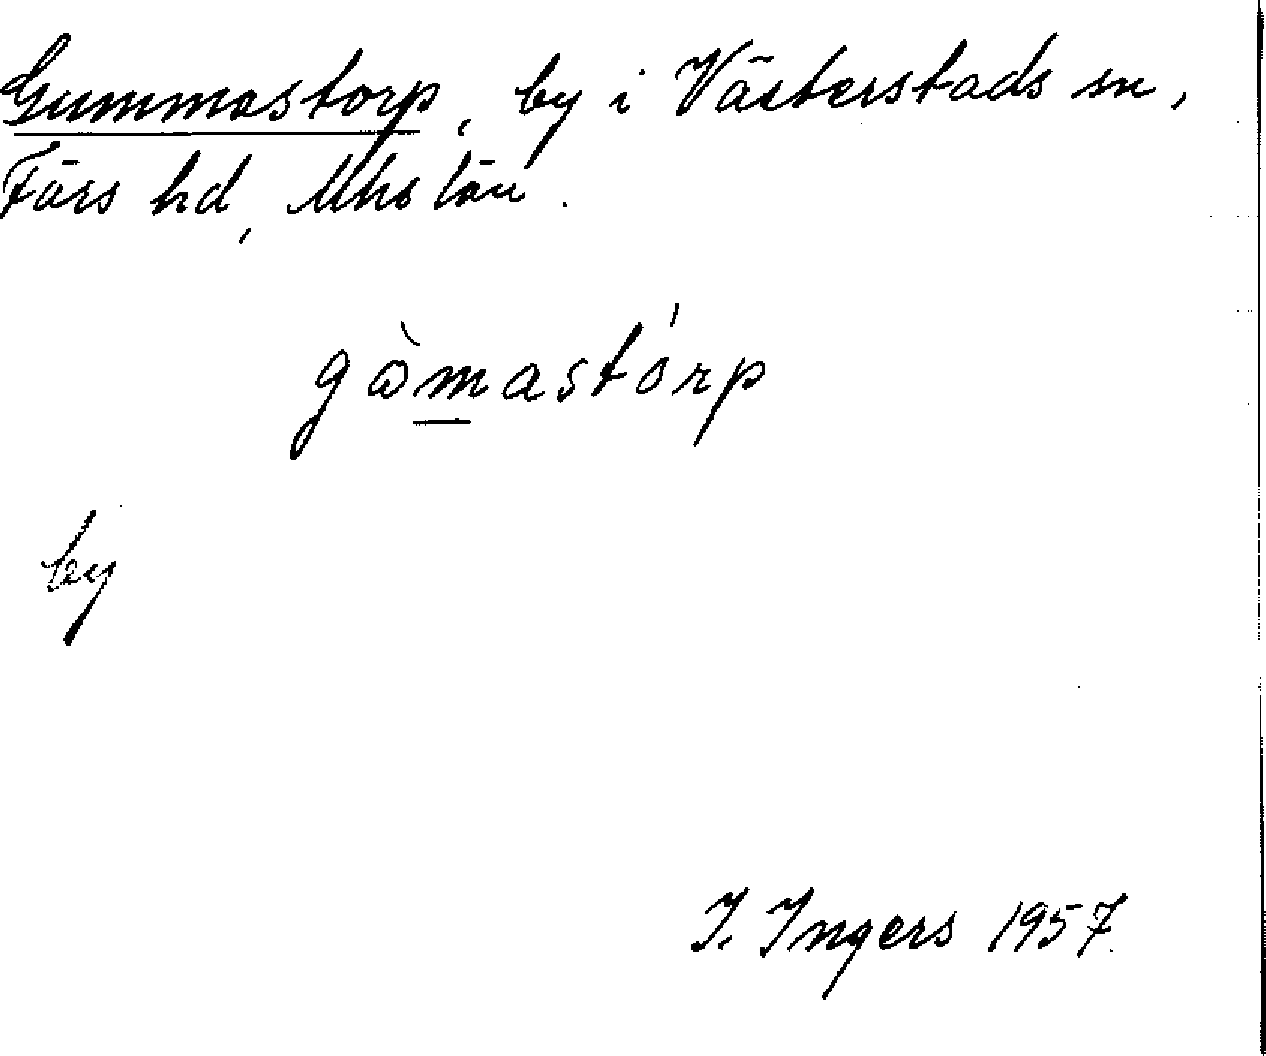 Gummastorp, by i Västerstads sn,
Färs hd, Mhs län.
gɷ̀mastórp
by
I. Ingers 1957.